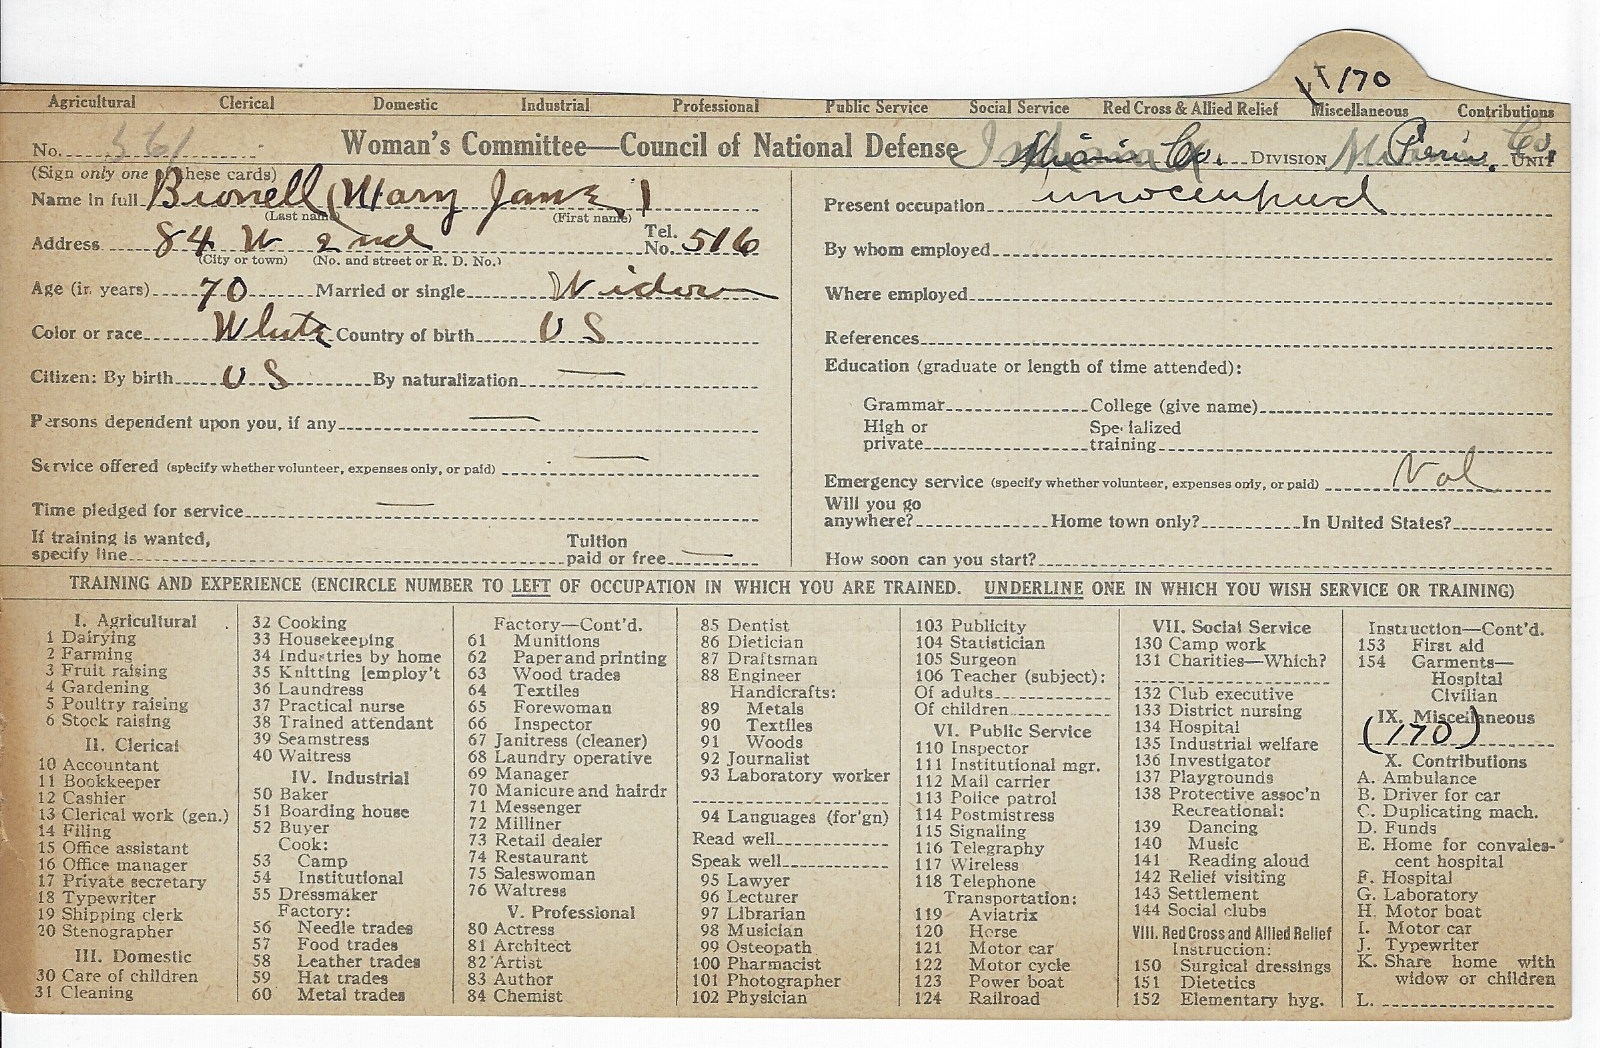 170
Agricultural Clerical Domestic Industrial Professional Public Service Social Service Red Cross & Allied Relief Miscellaneous Contributions
No. 561 Woman's Committee—Council of National Defense Miami Co. DIVISION Peru. UNIT
(Sign only one of these cards)
Name in full (Mary Jane)
(Last name) (First name)
Address 84 W 2nd Tel. No. 516
(City or town) (No. and street or R. D. No.)
Age (in years) 70 Married or single Widow
Color or race White Country of birth U S
Citizen: By birth U S By naturalization —
Persons dependent upon you, if any —
Service offered (specify whether volunteer, expenses only, or paid) —
Time pledged for service —
If training is wanted, specify line Tuition paid or free —
Present occupation unoccupied
By whom employed
Where employed
References
Education (graduate or length of time attended):
Grammar College (give name)
High or private Specialized training
Emergency service (specify whether volunteer, expenses only, or paid) Vol
Will you go anywhere? Home town only? In United States?
How soon can you start?
TRAINING AND EXPERIENCE (ENCIRCLE NUMBER TO LEFT OF OCCUPATION IN WHICH YOU ARE TRAINED. UNDERLINE ONE IN WHICH YOU WISH SERVICE OR TRAINING)
I. Agricultural
1 Dairying
2 Farming
3 Fruit raising
4 Gardening
5 Poultry raising
6 Stock raising
II. Clerical
10 Accountant
11 Bookkeeper
12 Cashier
13 Clerical work (gen.)
14 Filing
15 Office assistant
16 Office manager
17 Private secretary
18 Typewriter
19 Shipping clerk
20 Stenographer
III. Domestic
30 Care of children
31 Cleaning
32 Cooking
33 Housekeeping
34 Industries by home
35 Knitting [employ't
36 Laundress
37 Practical nurse
38 Trained attendant
39 Seamstress
40 Waitress
IV. Industrial
50 Baker
51 Boarding house
52 Buyer
Cook:
53 Camp
54 Institutional
55 Dressmaker
Factory:
56 Needle trades
57 Food trades
58 Leather trades
59 Hat trades
60 Metal trades
Factory—Cont'd.
61 Munitions
62 Paper and printing
63 Wood trades
64 Textiles
65 Forewoman
66 Inspector
67 Janitress (cleaner)
68 Laundry operative
69 Manager
70 Manicure and hairdr
71 Messenger
72 Milliner
73 Retail dealer
74 Restaurant
75 Saleswoman
76 Waitress
V. Professional
80 Actress
81 Architect
82 Artist
83 Author
84 Chemist
85 Dentist
86 Dietician
87 Draftsman
88 Engineer
Handicrafts:
89 Metals
90 Textiles
91 Woods
92 Journalist
93 Laboratory worker
94 Languages (for'gn)
Read well
Speak well
95 Lawyer
96 Lecturer
97 Librarian
98 Musician
99 Osteopath
100 Pharmacist
101 Photographer
102 Physician
103 Publicity
104 Statistician
105 Surgeon
106 Teacher (subject):
Of adults
Of children
VI. Public Service
110 Inspector
111 Institutional mgr.
112 Mail carrier
113 Police patrol
114 Postmistress
115 Signaling
116 Telegraphy
117 Wireless
118 Telephone
Transportation:
119 Aviatrix
120 Horse
121 Motor car
122 Motor cycle
123 Power boat
124 Railroad
VII. Social Service
130 Camp work
131 Charities—Which?
132 Club executive
133 District nursing
134 Hospital
135 Industrial welfare
136 Investigator
137 Playgrounds
138 Protective assoc'n
Recreational:
139 Dancing
140 Music
141 Reading aloud
142 Relief visiting
143 Settlement
144 Social clubs
VIII. Red Cross and Allied Relief
Instruction:
150 Surgical dressings
151 Dietetics
152 Elementary hyg.
Instruction—Cont'd.
153 First aid
154 Garments—
Hospital
Civilian
IX. Miscellaneous
(170)
X. Contributions
A. Ambulance
B. Driver for car
C. Duplicating mach.
D. Funds
E. Home for convales-
cent hospital
F. Hospital
G. Laboratory
H. Motor boat
I. Motor car
J. Typewriter
K. Share home with
widow or children
L.